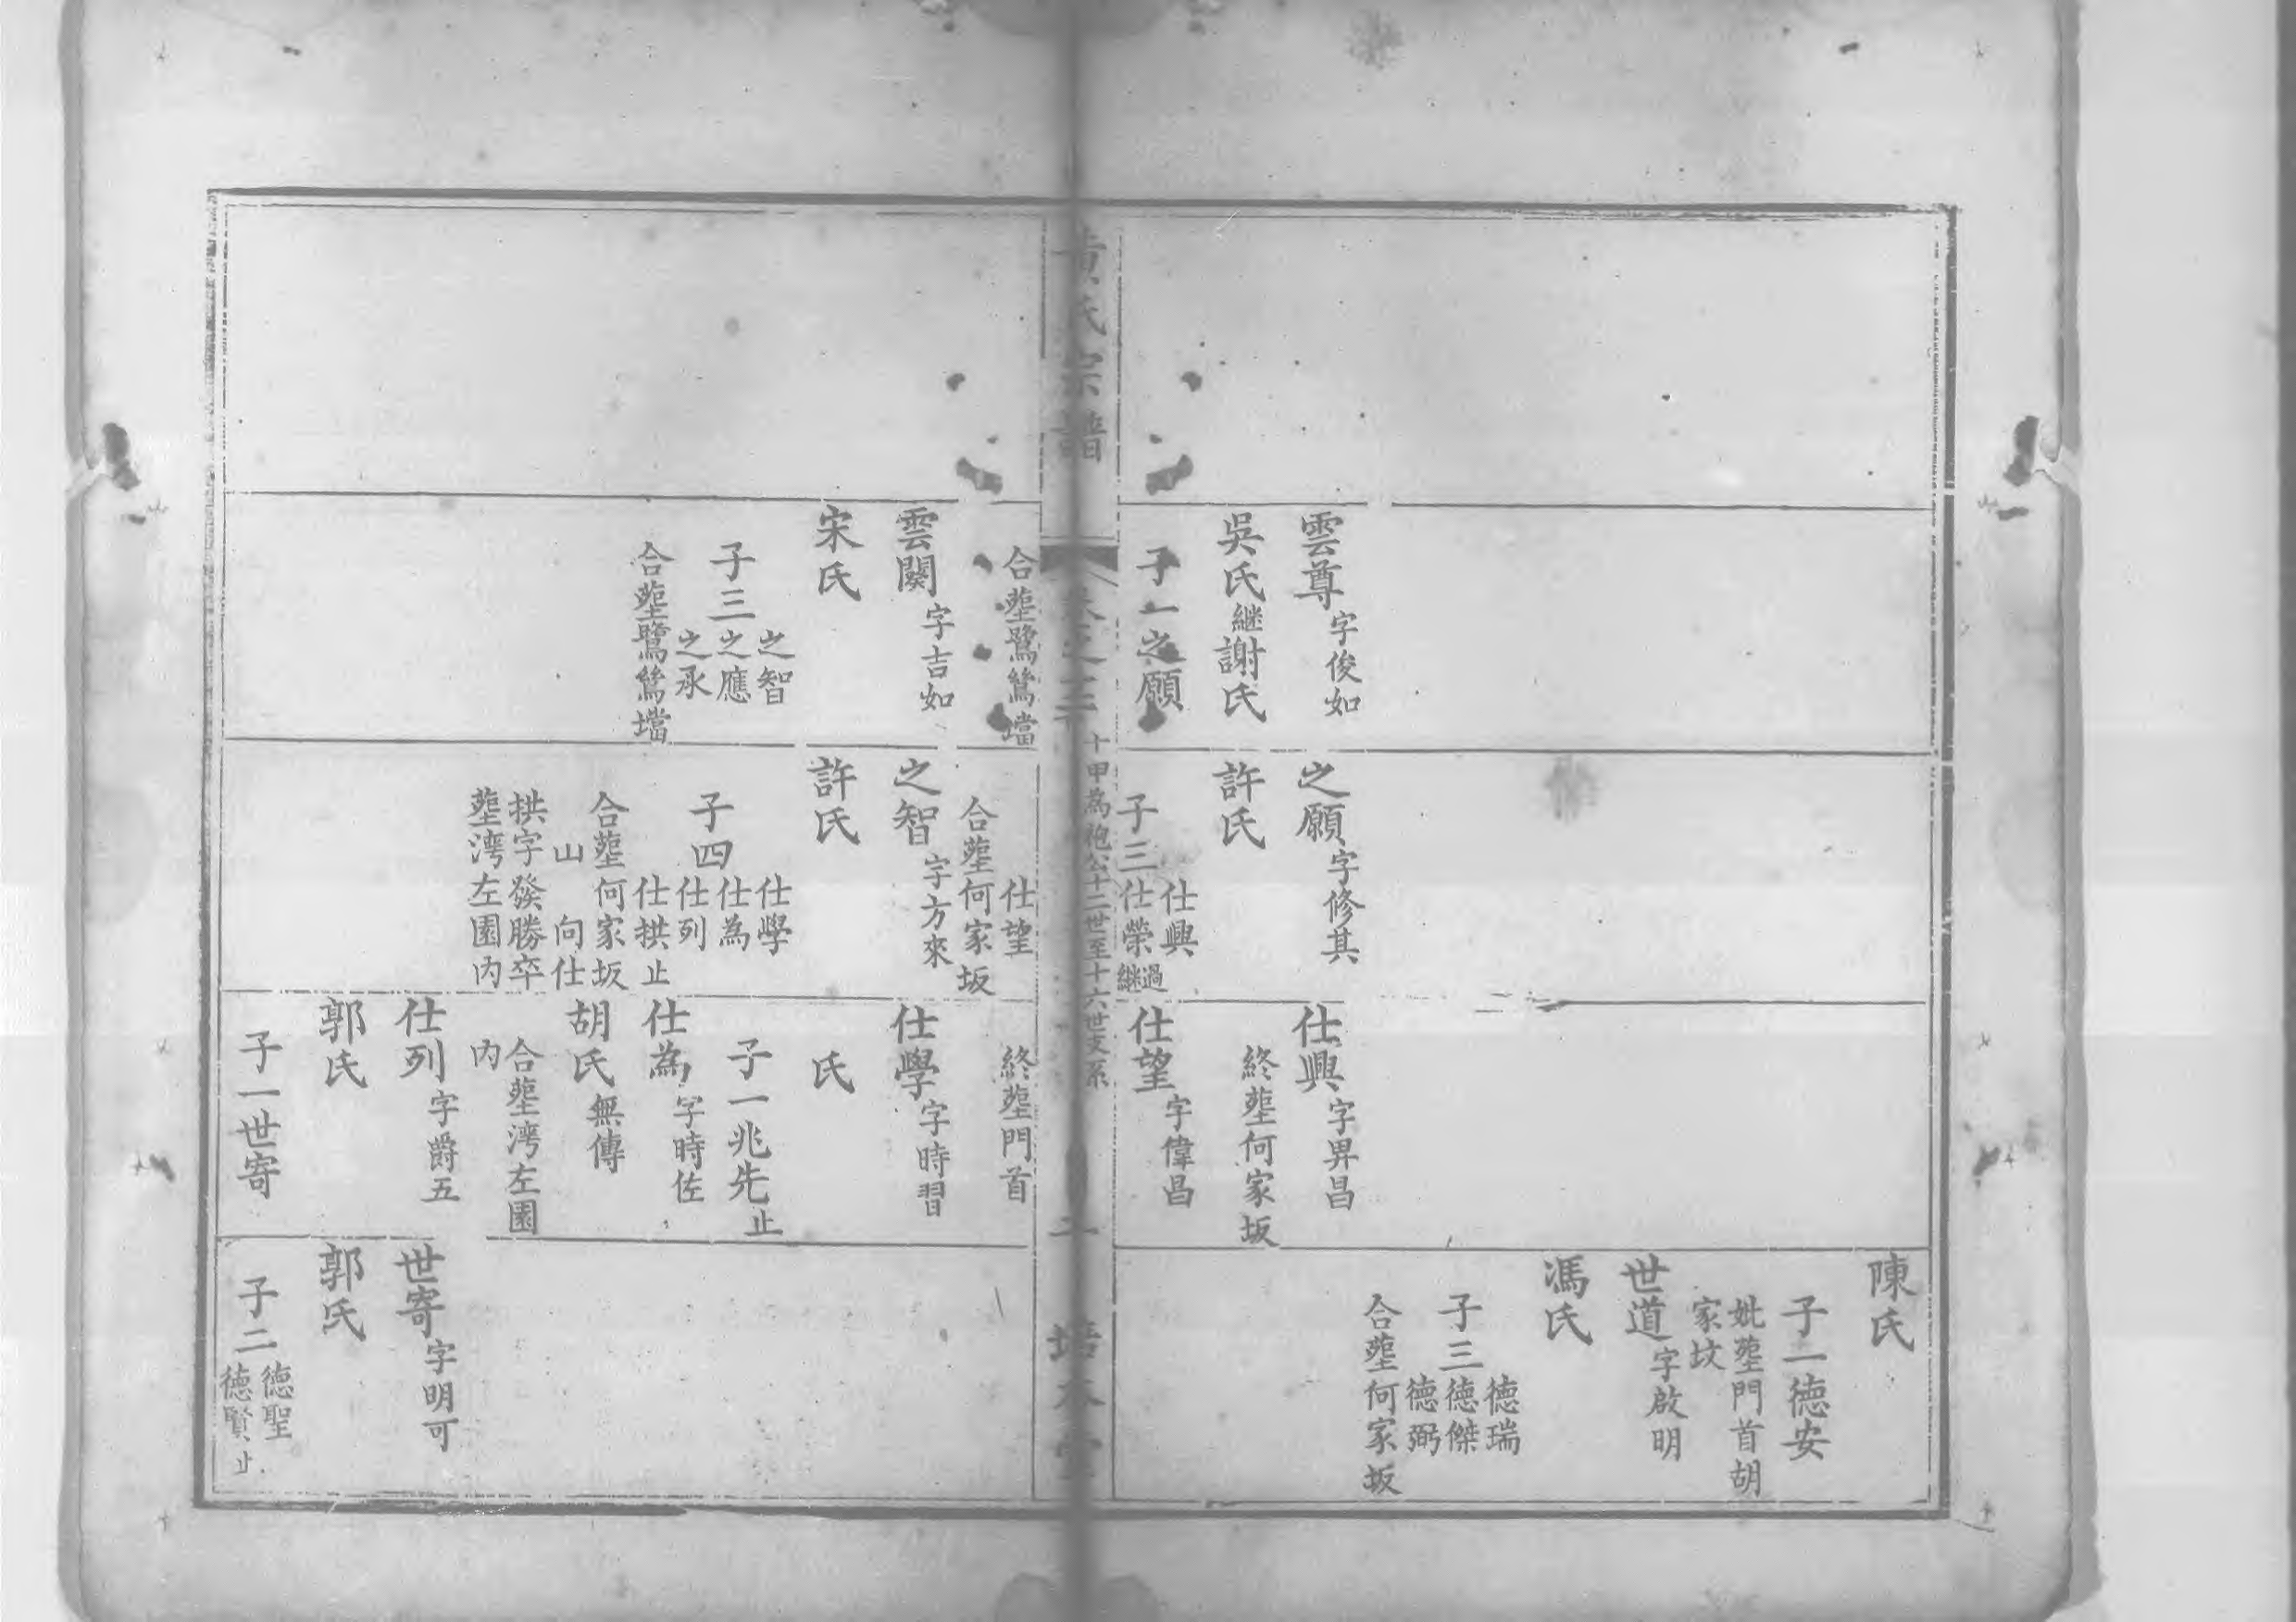 雲尊字俊如
吳氏繼謝氏
子一之願
之願字修其
許氏
子三仕興
仕榮過繼
仕興字昇昌
終塟何家坂
仕望字偉昌
陳氏
子一德安
妣塟門首胡
家坟
世道字啟明
馮氏
子三德瑞
德傑
德弼
合塟何家坂
黃氏宗譜
卷之三
十甲為袍公十二世至十六世支系
二
培本堂
合塟鷺鷥壋
雲闋字吉如
宋氏
子三之智
之應
之承
合塟鷺鷥壋
仕望
合塟何家坂
之智字方來
許氏
子四仕學
仕為
仕列
仕拱止
合塟何家坂
山向仕
拱字發勝卒
塟湾左園內
終塟門首
仕學字時習
氏
子一兆先止
仕為字時佐
胡氏無傳
合塟湾左園
內
仕列字爵五
郭氏
子一世寄
世寄字明可
郭氏
子二德聖
德賢止